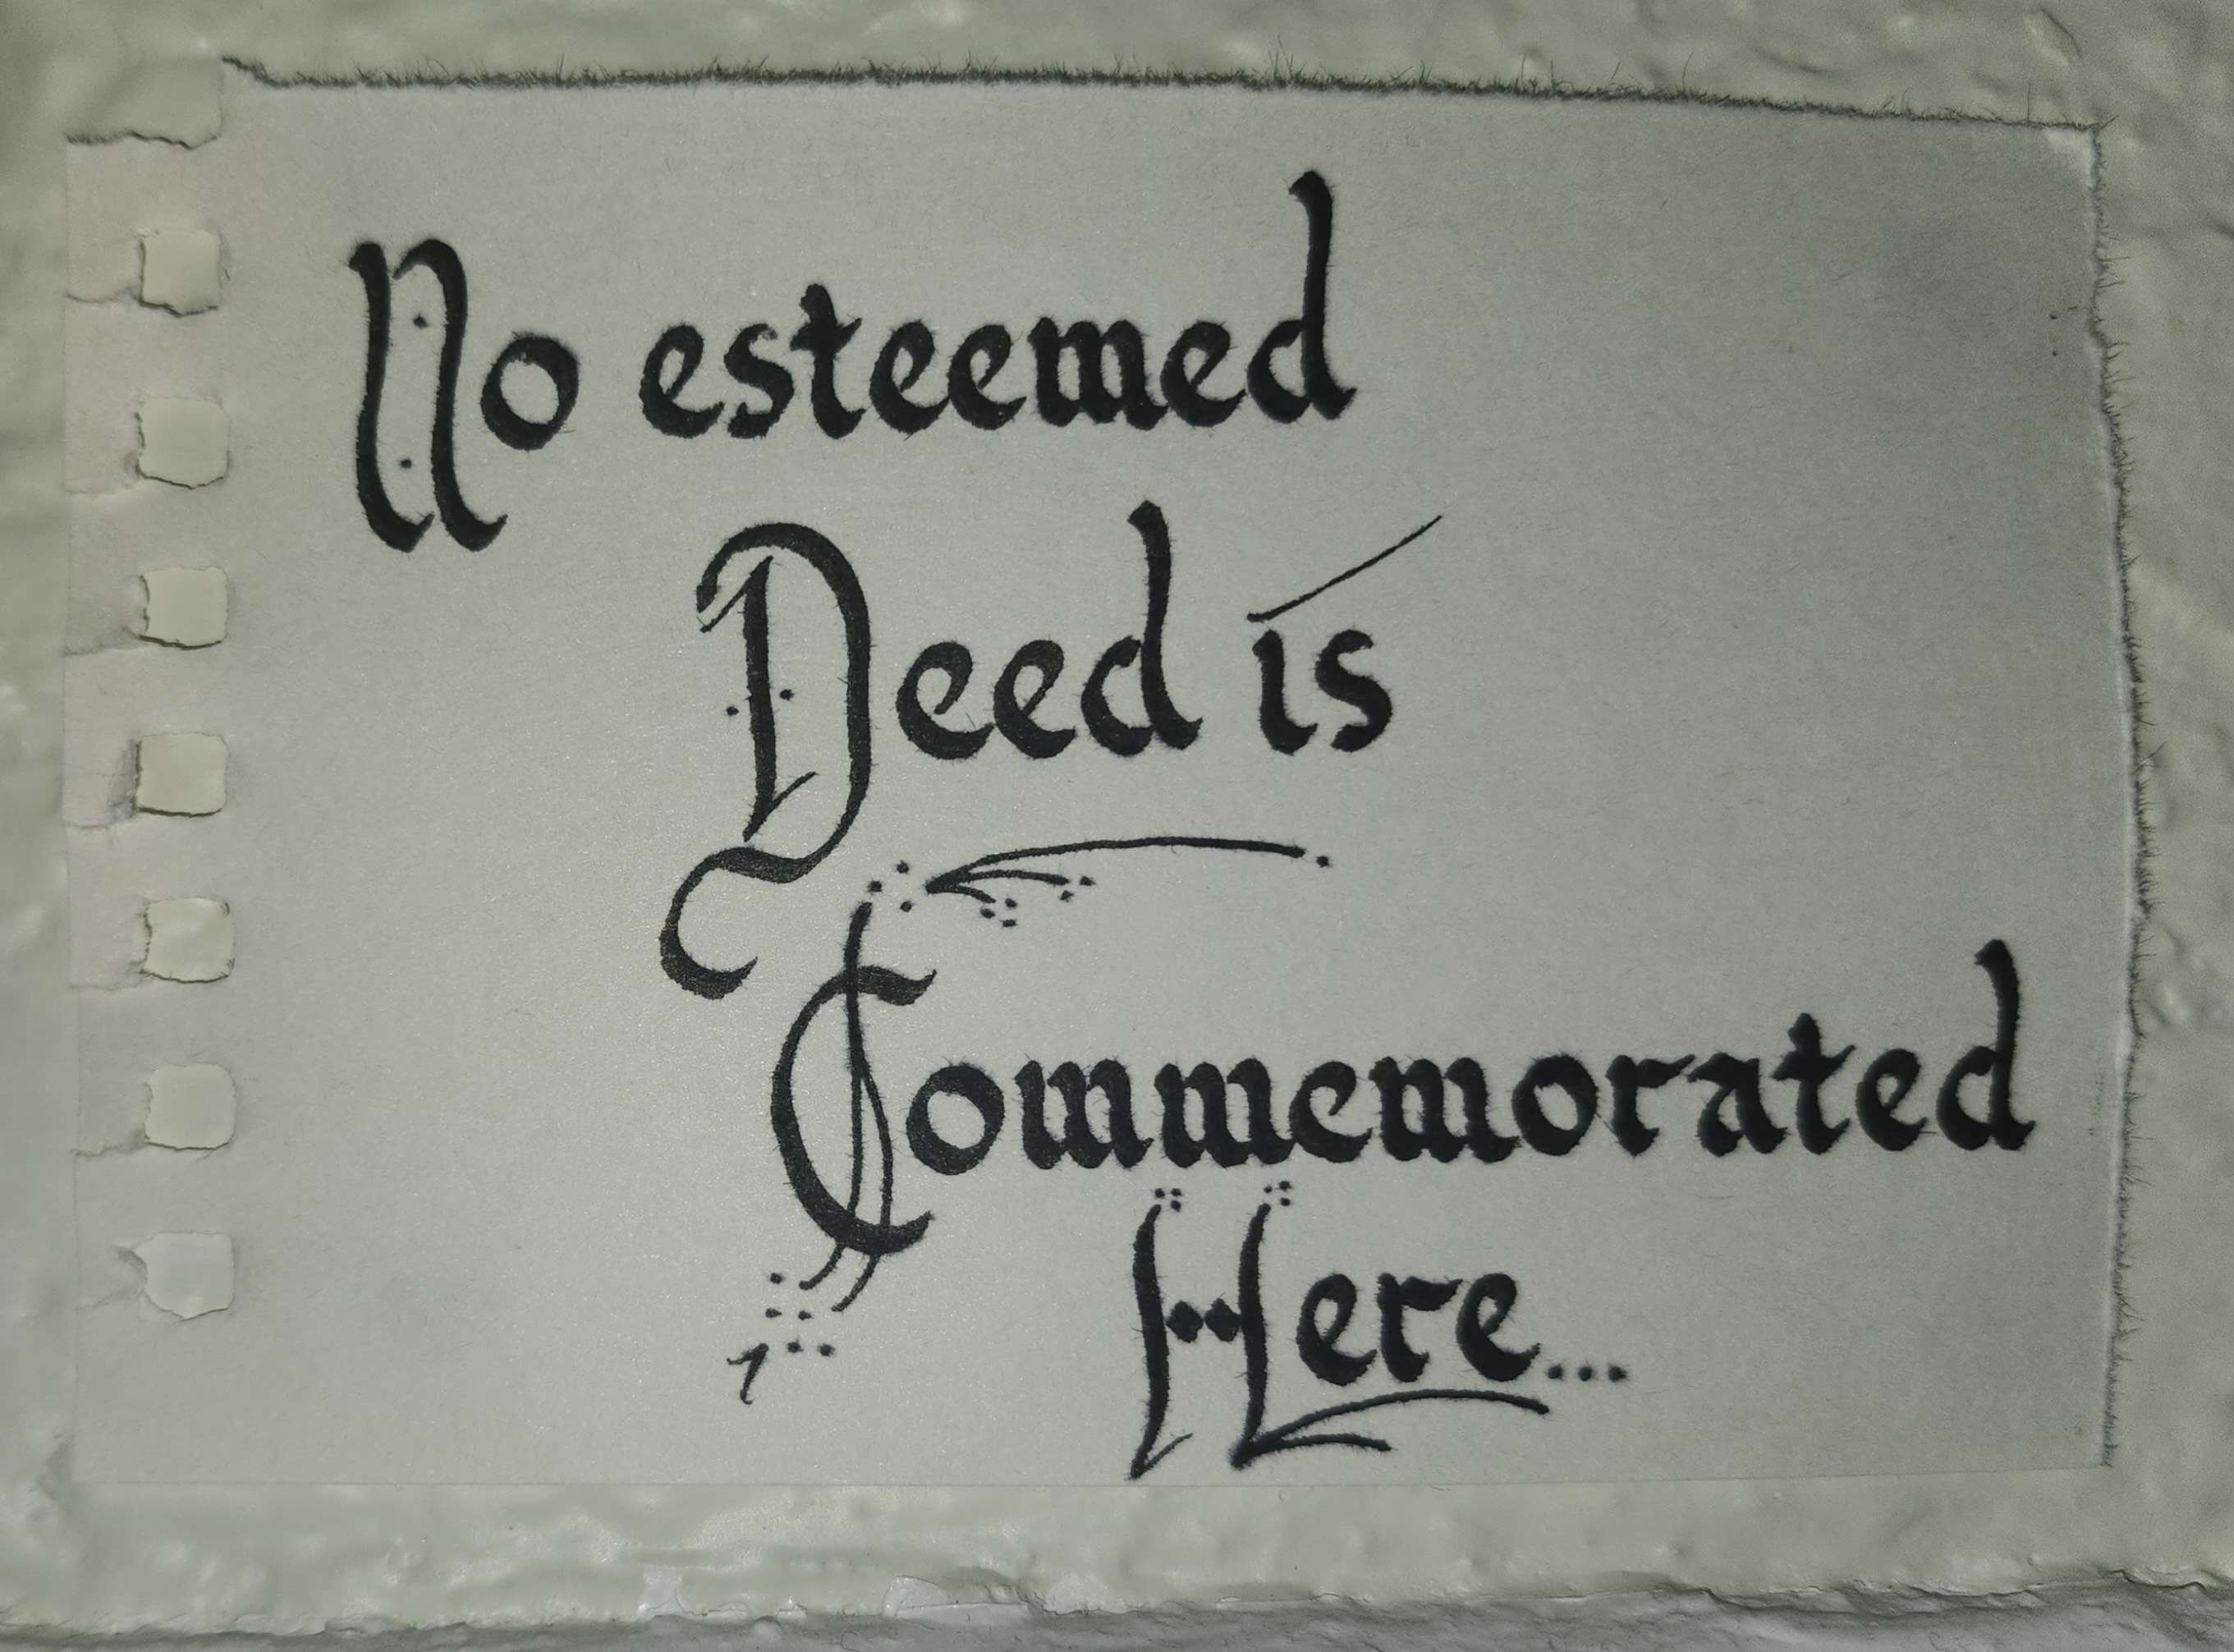 No esteemed
Deed is
Commemorated
Here...